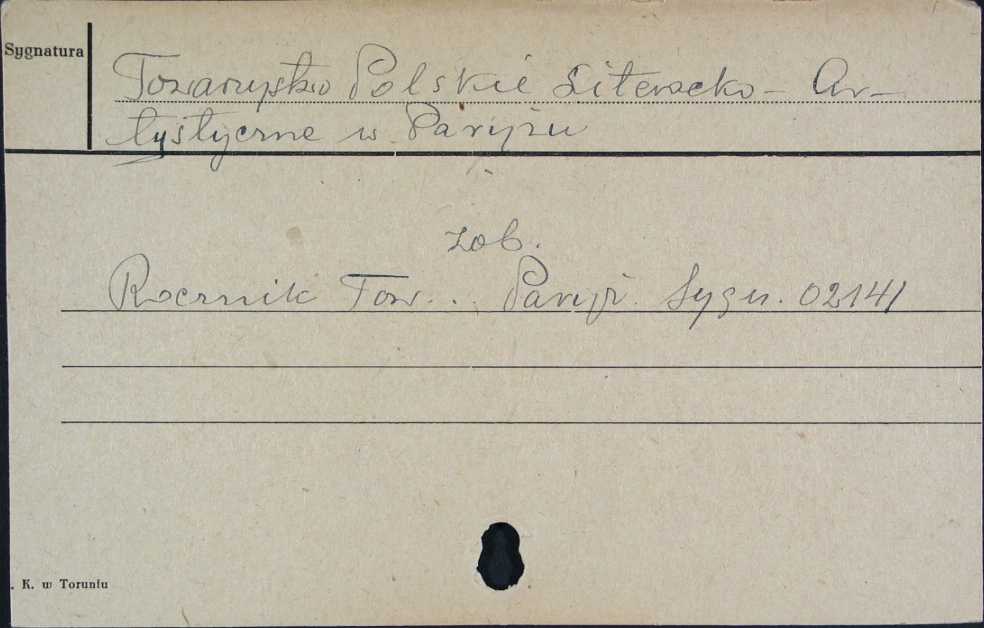 Sygnatura
Towarzystwo Polskie Literacko - Ar-
tystyczne w Paryżu
zob.
Rocznik Tow. . . Paryż. Sygn. 02141
. K. w Toruniu